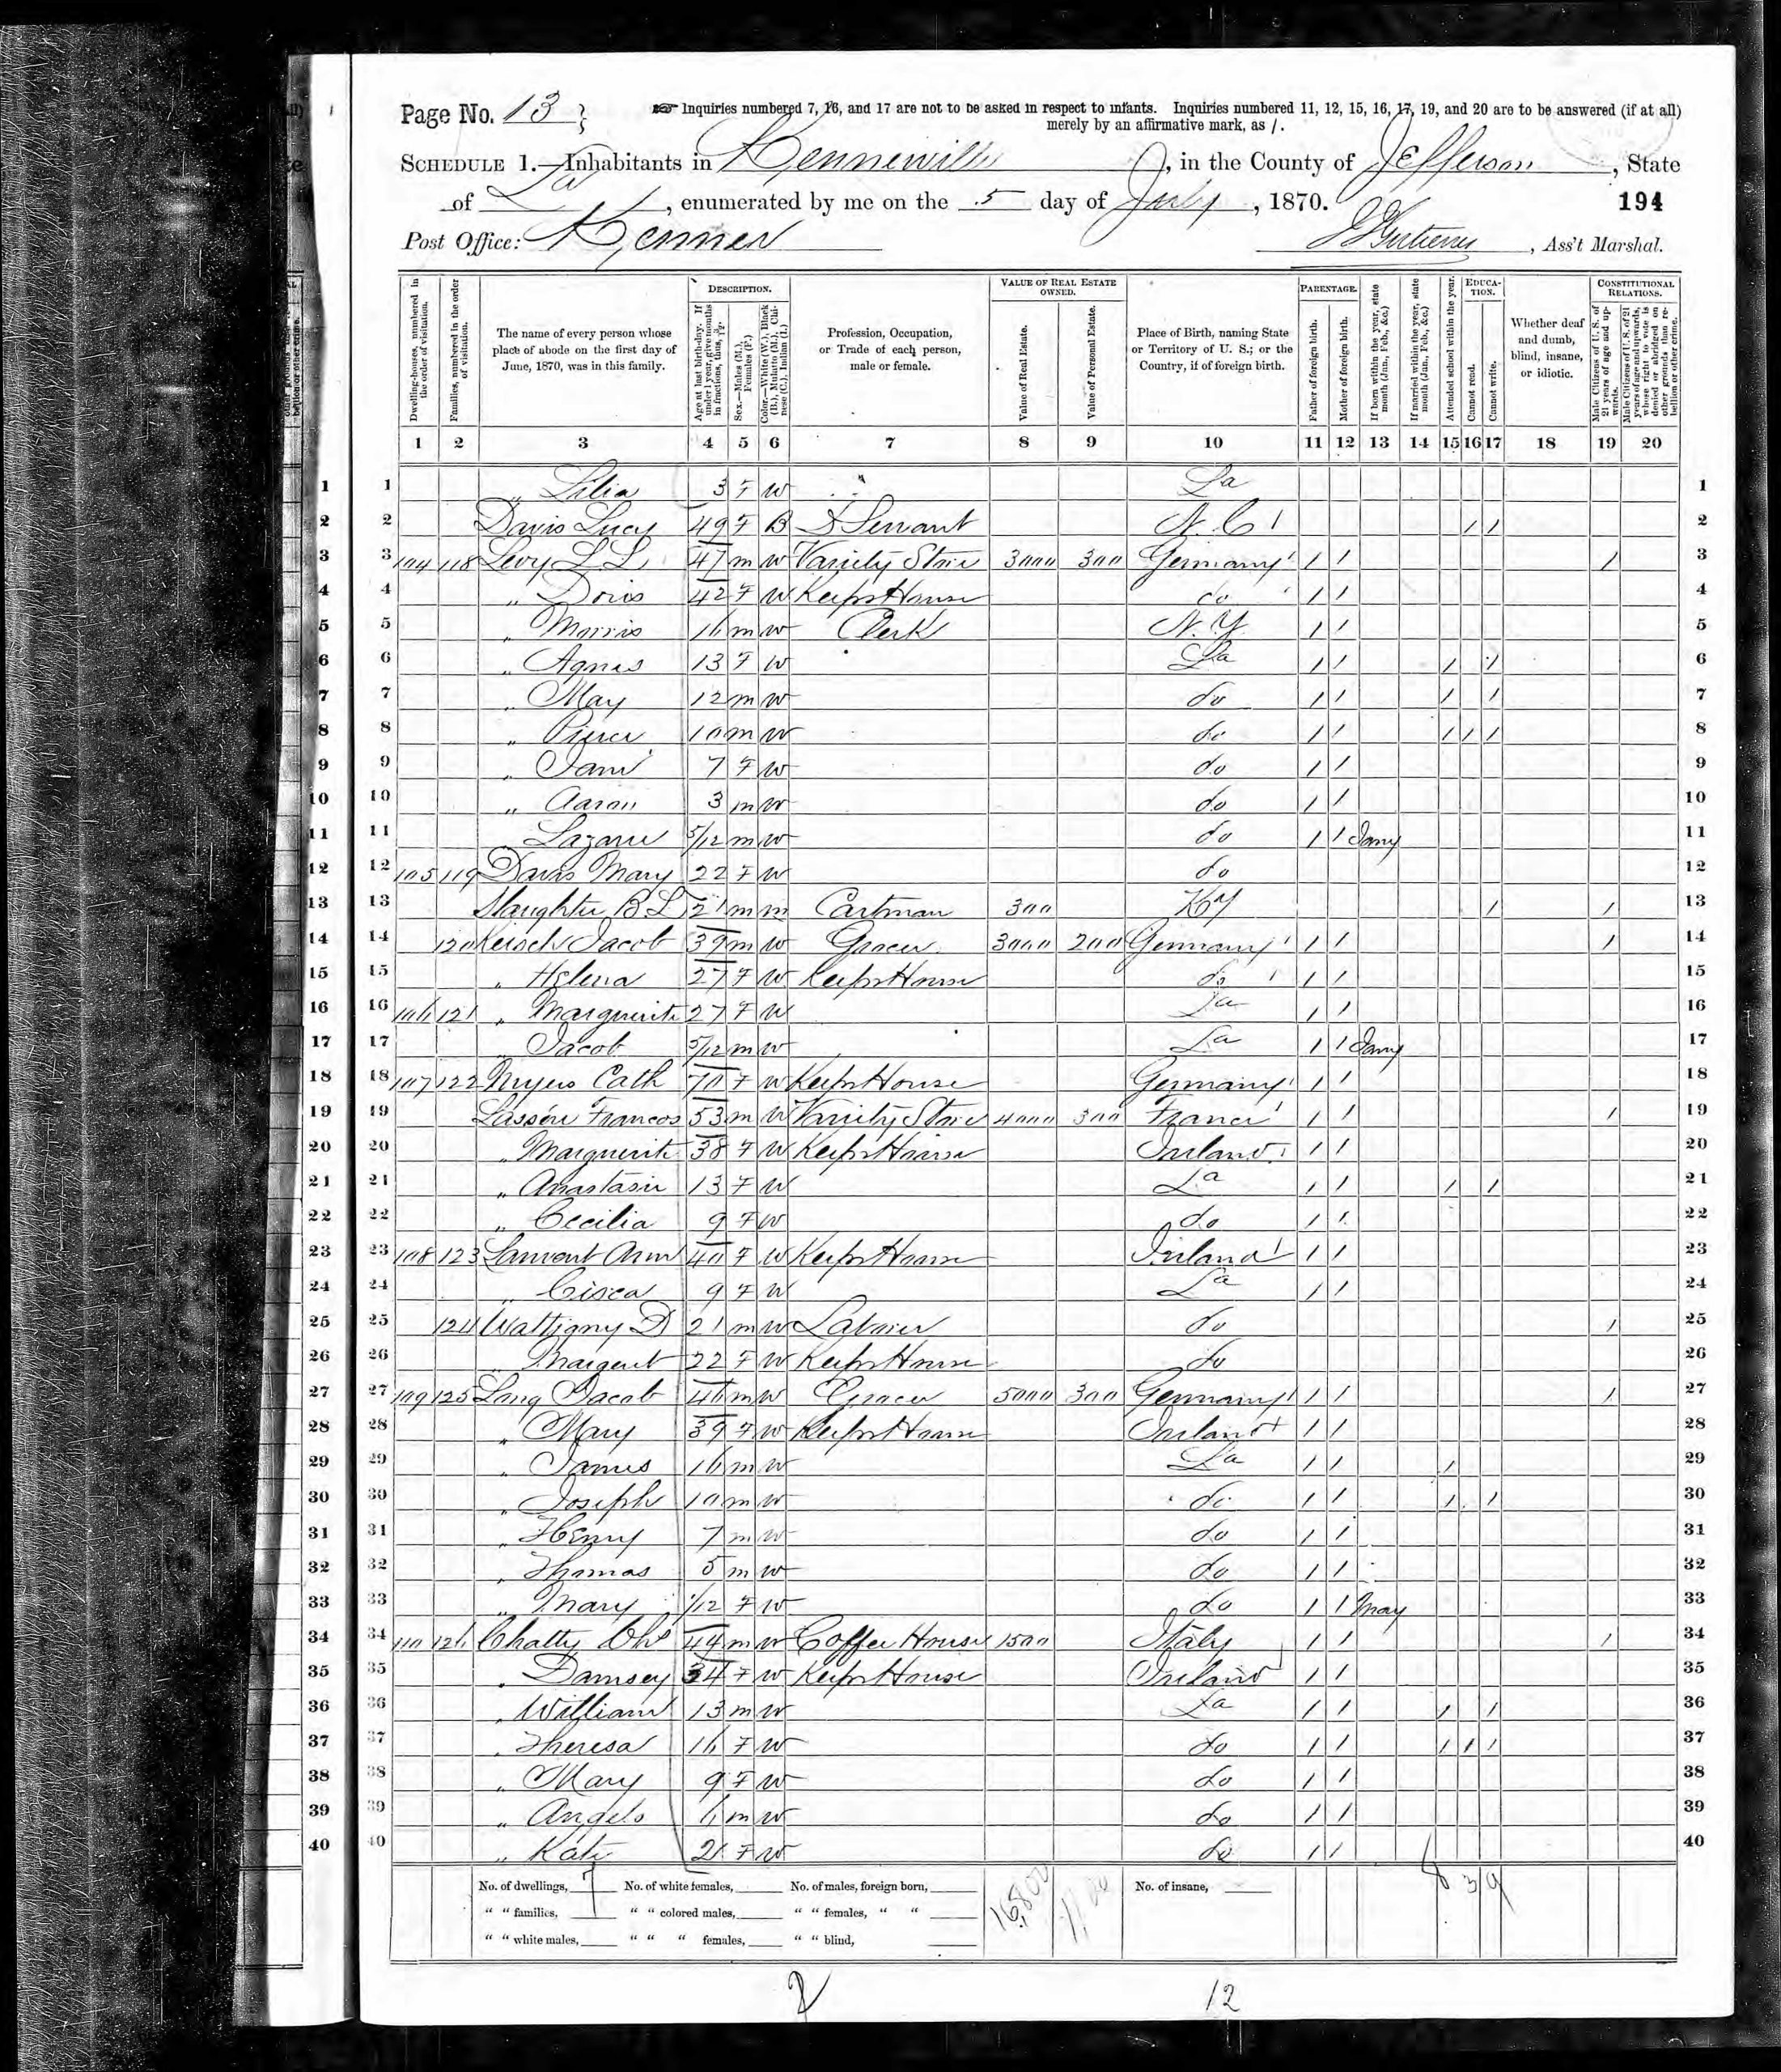 Page No. 13
☞ Inquiries numbered 7, 16, and 17 are not to be asked in respect to infants. Inquiries numbered 11, 12, 15, 16, 17, 19, and 20 are to be answered (if at all)
merely by an affirmative mark, as /.
SCHEDULE 1.—Inhabitants in Kenneville, in the County of Jefferson, State
of La, enumerated by me on the 5 day of July, 1870. 194
Post Office: Kenner , Ass't Marshal.
DESCRIPTION. VALUE OF REAL ESTATE OWNED. PARENTAGE. EDUCATION. CONSTITUTIONAL RELATIONS.
Dwelling-houses, numbered in the order of visitation.
Families, numbered in the order of visitation.
The name of every person whose place of abode on the first day of June, 1870, was in this family.
Age at last birth-day. If under 1 year, give months in fractions, thus, 3/12.
Sex.—Males (M.), Females (F.)
Color.—White (W.), Black (B.), Mulatto (M.), Chinese (C.), Indian (I.)
Profession, Occupation, or Trade of each person, male or female.
Value of Real Estate.
Value of Personal Estate.
Place of Birth, naming State or Territory of U. S.; or the Country, if of foreign birth.
Father of foreign birth.
Mother of foreign birth.
If born within the year, state month (Jan., Feb., &c.)
If married within the year, state month (Jan., Feb., &c.)
Attended school within the year.
Cannot read.
Cannot write.
Whether deaf and dumb, blind, insane, or idiotic.
Male Citizens of U. S. of 21 years of age and upwards.
Male Citizens of U. S. of 21 years of age and upwards, whose right to vote is denied or abridged on other grounds than rebellion or other crime.
1 2 3 4 5 6 7 8 9 10 11 12 13 14 15 16 17 18 19 20
1 " Lilia 3 F W La 1
2 Davis Lucy 49 F B D Servant N. C / / 2
3 104 118 Levy L L 47 m W Variety Store 3000 300 Germany / / / 3
4 " Doris 42 F W Keeps House do / / 4
5 " Morris 16 m W Clerk N. Y. / / 5
6 " Agnes 13 F W La / / / / 6
7 " May 12 m W do / / / / 7
8 " 10 m W do / / / / / 8
9 " 7 F W do / / 9
10 " Aaron 3 m W do / / 10
11 Lazare 5/12 m W do / / Jany 11
12 105 119 Davis Mary 22 F W do 12
13 Slaughter B L 21 m m Cartman 300 Ky / / 13
14 120 Jacob 39 m W Grocer 3000 200 Germany / / / 14
15 " Helena 27 F W Keeps House do / / 15
16 106 121 " Marguerite 27 F W La / / 16
17 " Jacob 5/12 m W La / / Jany 17
18 107 122 Myers Cath 70 F W Keeps House Germany / / 18
19 Francos 53 m W Variety Store 4000 300 France / / / 19
20 " Marguerite 38 F W Keeps House Ireland / / 20
21 " Anastasie 13 F W La / / / / 21
22 " Cecilia 9 F W do / / 22
23 108 123 Ann 40 F W Keeps House Ireland / / 23
24 " 9 F W La / / 24
25 124 Wattigny D 21 m W Laborer do / 25
26 " Margaret 22 F W Keeps House do 26
27 109 125 Long Jacob 46 m W Grocer 5000 300 Germany / / / 27
28 " Mary 39 F W Keeps House Ireland / / 28
29 " James 16 m W La / / / 29
30 " Joseph 10 m W do / / / / 30
31 " Henry 7 m W do / / 31
32 " Thomas 5 m W do / / 32
33 " Mary 1/12 F W do / / May 33
34 110 126 Chatty 44 m W Coffee House 1500 Italy / / / 34
35 " Damsey 34 F W Keeps House Ireland / / 35
36 " William 13 m W La / / / / 36
37 " Theresa 16 F W do / / / / / 37
38 " Mary 9 F W do / / 38
39 " Angelo 6 m W do / / 39
40 " Kate 2 F W do / / 40
No. of dwellings, 7 No. of white females, No. of males, foreign born, 16,800 No. of insane, 8 3 9
" " families, " " colored males, " " females, " "
" " white males, " " " females, " " blind,
12